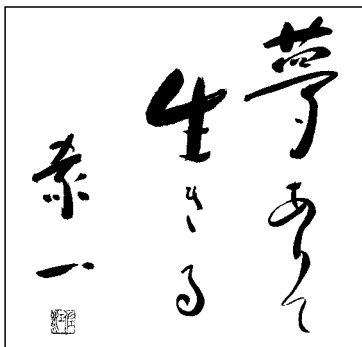 夢ありて
生きる
素一